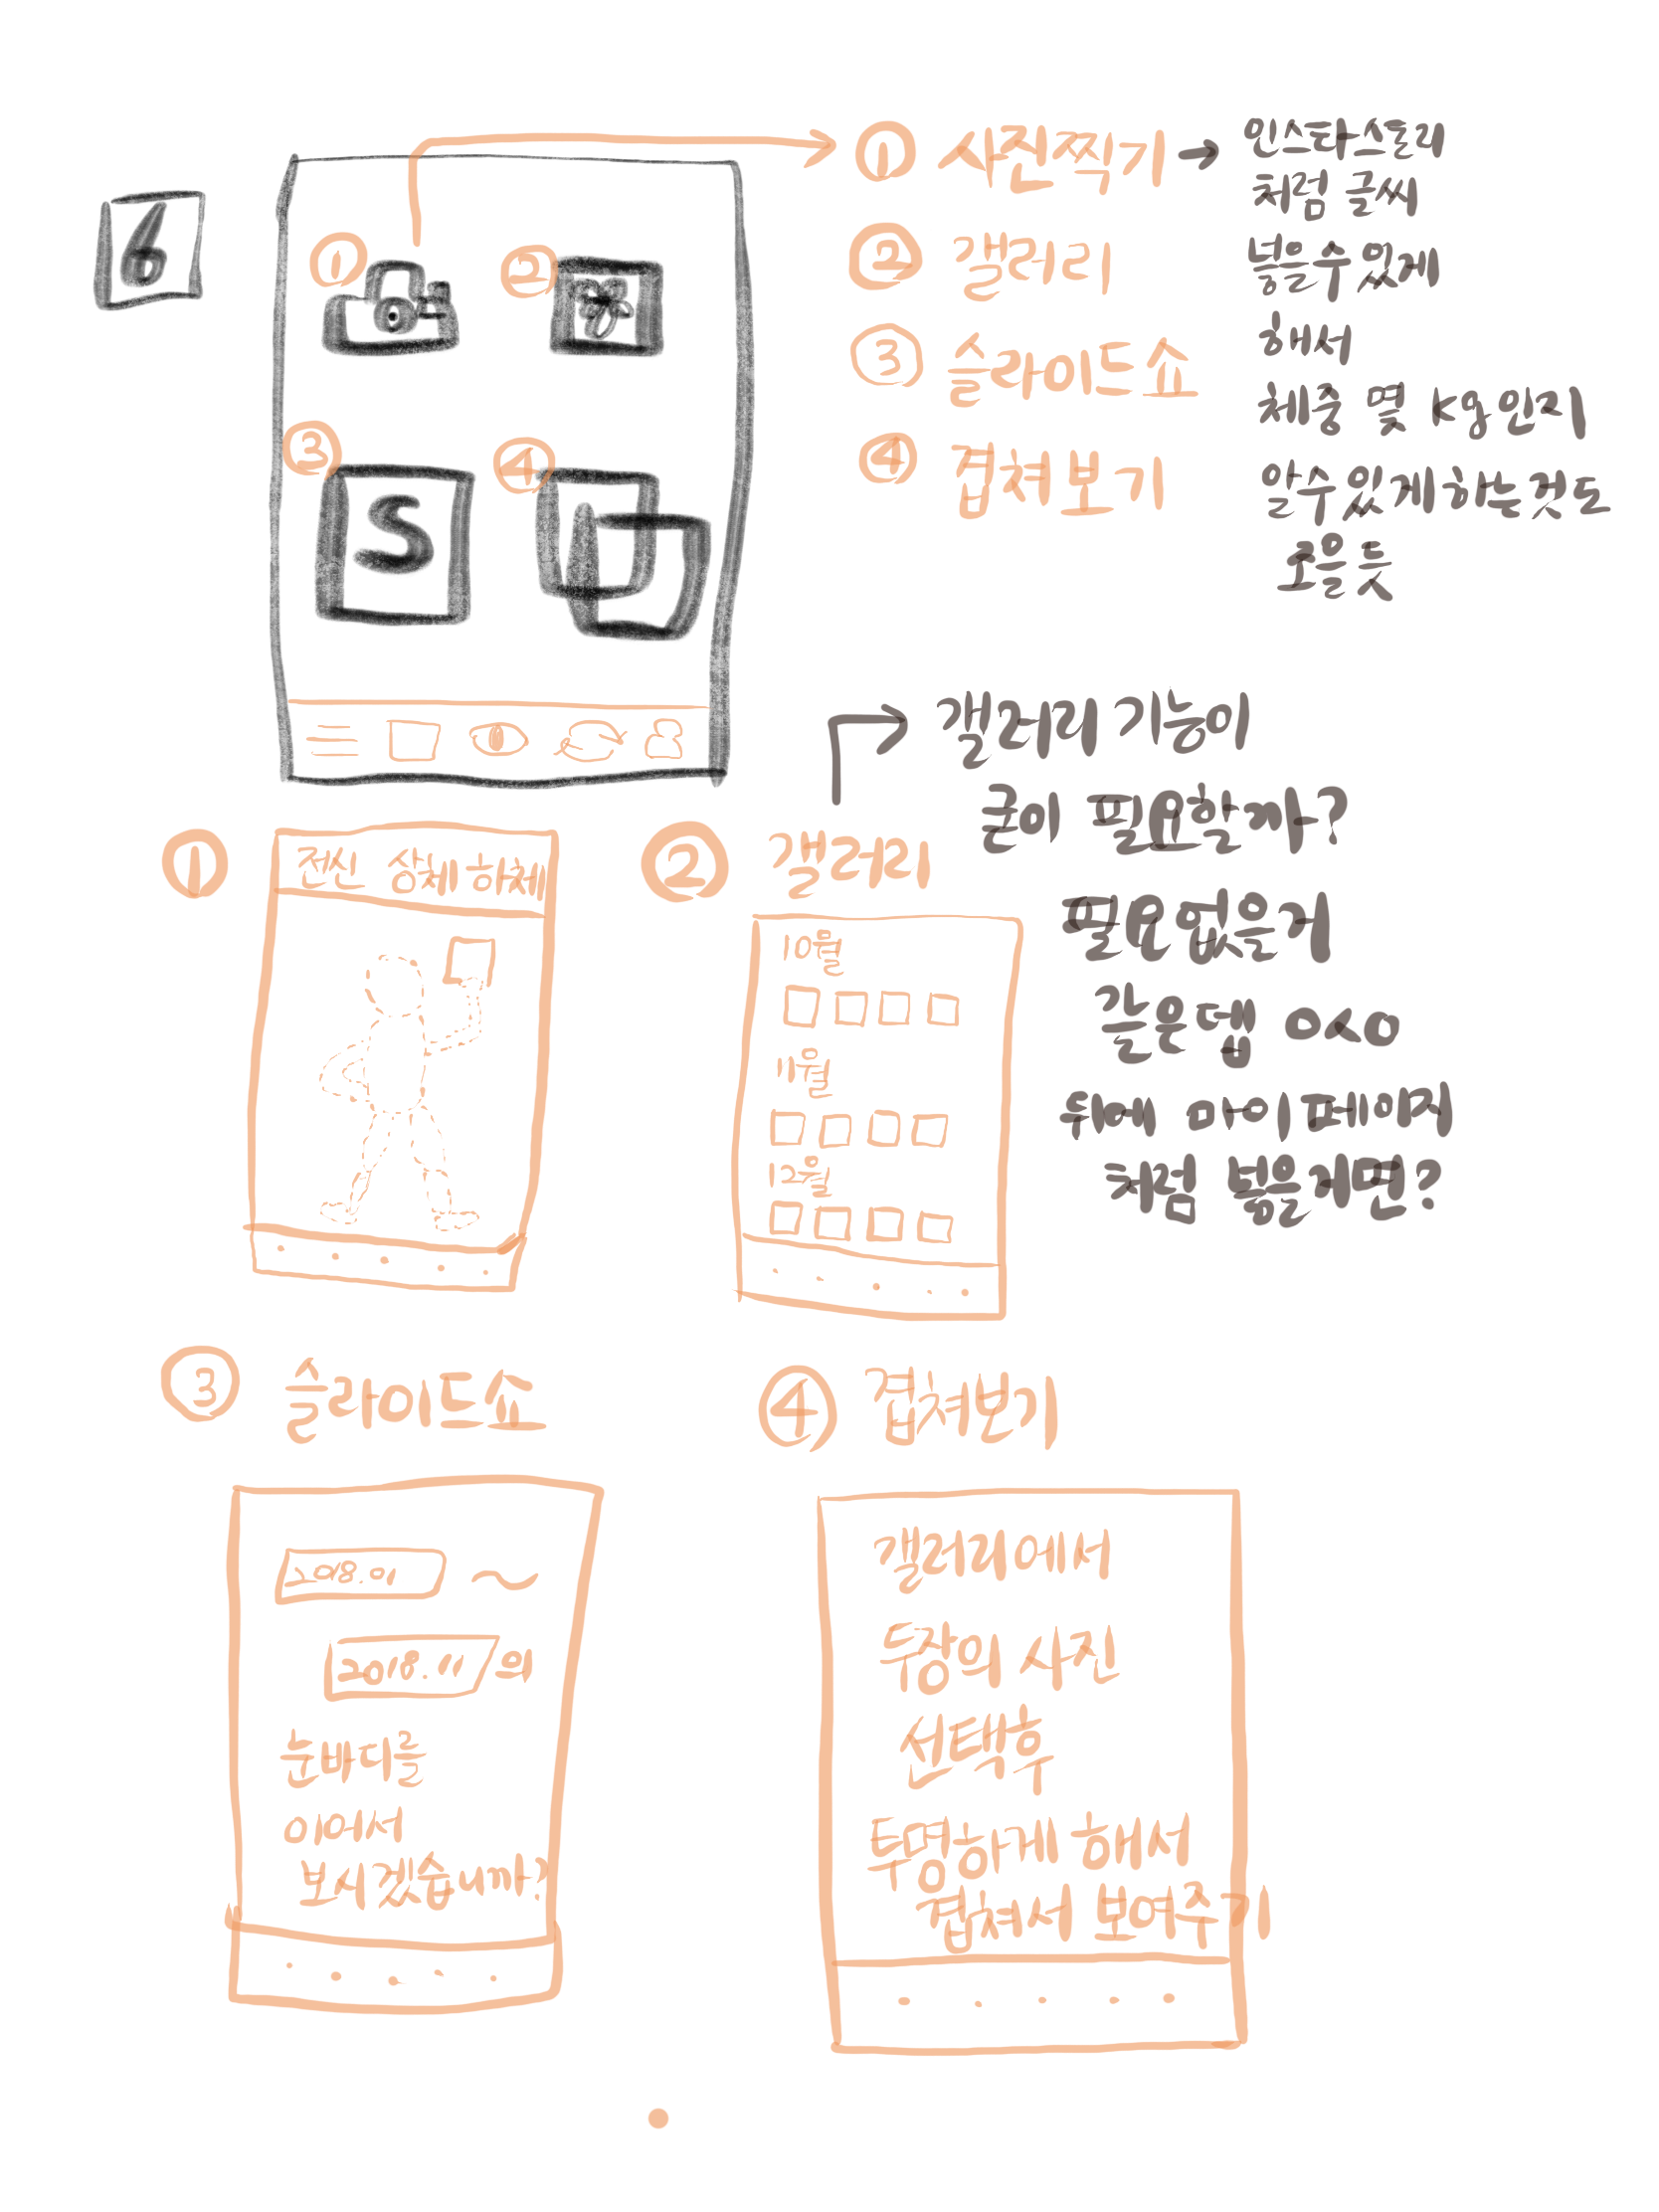 6
① ②
③ ④
S
① 사진찍기 →
② 갤러리
③ 슬라이드쇼
④ 겹쳐보기
인스타스토리
처럼 글씨
넣을수있게
해서
체중 몇 kg인지
알수있게하는것도
조을듯
갤러리 기능이
굳이 필요할까?
필요없을거
같은뎁 ㅇㅅㅇ
뒤에 마이페이지
처럼 넣을거면?
①
전신 상체 하체
② 갤러리
10월
11월
12월
③ 슬라이드쇼
2018.01 ~
2018.11 의
눈바디를
이어서
보시겠습니까?
④ 겹쳐보기
갤러리에서
두장의 사진
선택후
투명하게 해서
겹쳐서 보여주기